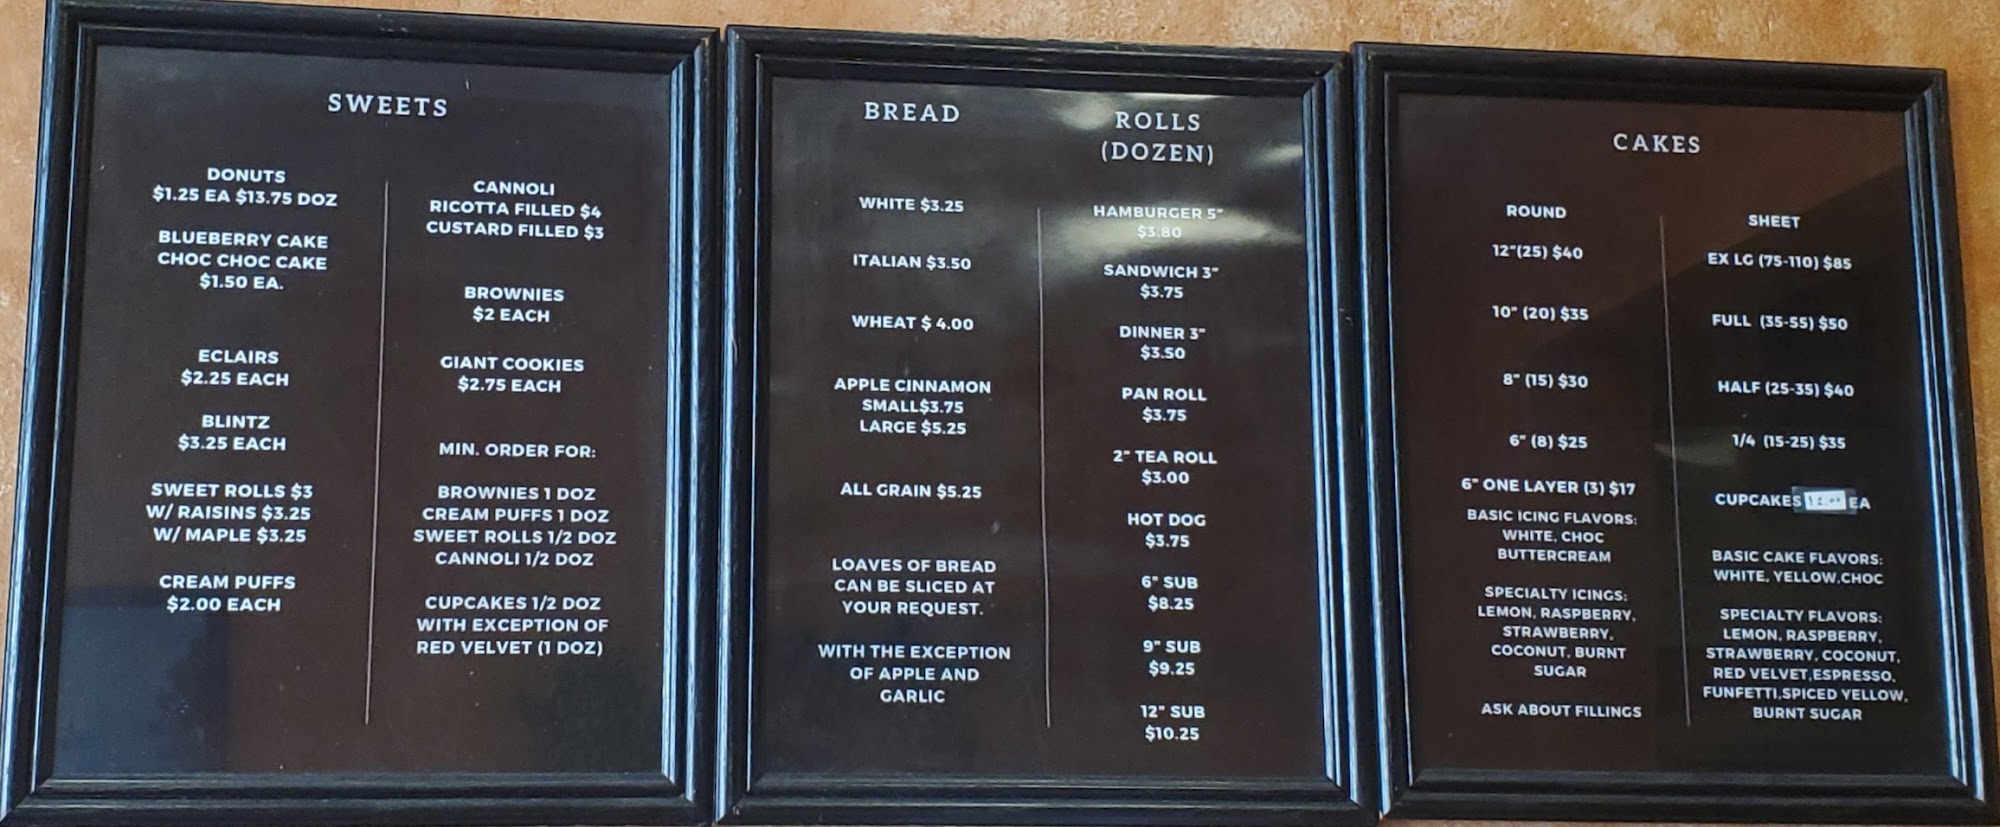 SWEETS
DONUTS
$1.25 EA $13.75 DOZ
BLUEBERRY CAKE
CHOC CHOC CAKE
$1.50 EA.
ECLAIRS
$2.25 EACH
BLINTZ
$3.25 EACH
SWEET ROLLS $3
W/ RAISINS $3.25
W/ MAPLE $3.25
CREAM PUFFS
$2.00 EACH
CANNOLI
RICOTTA FILLED $4
CUSTARD FILLED $3
BROWNIES
$2 EACH
GIANT COOKIES
$2.75 EACH
MIN. ORDER FOR:
BROWNIES 1 DOZ
CREAM PUFFS 1 DOZ
SWEET ROLLS 1/2 DOZ
CANNOLI 1/2 DOZ
CUPCAKES 1/2 DOZ
WITH EXCEPTION OF
RED VELVET (1 DOZ)
BREAD
WHITE $3.25
ITALIAN $3.50
WHEAT $ 4.00
APPLE CINNAMON
SMALL$3.75
LARGE $5.25
ALL GRAIN $5.25
LOAVES OF BREAD
CAN BE SLICED AT
YOUR REQUEST.
WITH THE EXCEPTION
OF APPLE AND
GARLIC
ROLLS
(DOZEN)
HAMBURGER 5"
$3.80
SANDWICH 3"
$3.75
DINNER 3"
$3.50
PAN ROLL
$3.75
2" TEA ROLL
$3.00
HOT DOG
$3.75
6" SUB
$8.25
9" SUB
$9.25
12" SUB
$10.25
CAKES
ROUND
12"(25) $40
10" (20) $35
8" (15) $30
6" (8) $25
6" ONE LAYER (3) $17
BASIC ICING FLAVORS:
WHITE, CHOC
BUTTERCREAM
SPECIALTY ICINGS:
LEMON, RASPBERRY,
STRAWBERRY,
COCONUT, BURNT
SUGAR
ASK ABOUT FILLINGS
SHEET
EX LG (75-110) $85
FULL (35-55) $50
HALF (25-35) $40
1/4 (15-25) $35
CUPCAKES EA
BASIC CAKE FLAVORS:
WHITE, YELLOW,CHOC
SPECIALTY FLAVORS:
LEMON, RASPBERRY,
STRAWBERRY, COCONUT,
RED VELVET,ESPRESSO,
FUNFETTI,SPICED YELLOW,
BURNT SUGAR